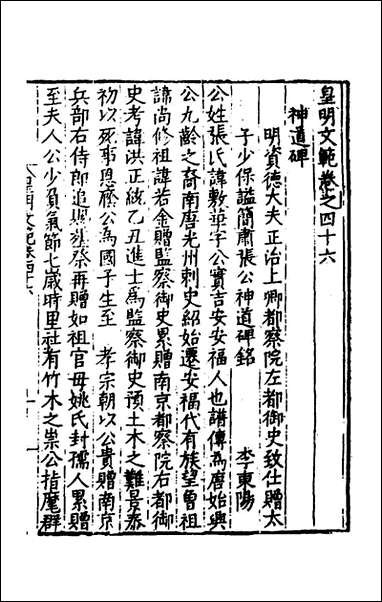 皇明文範卷之四十六
神道碑
明資德大夫正治上卿都察院左都御史致仕贈太
子少保謚簡肅張公神道碑銘 李東陽
公姓張氏諱敷華字公實吉安安福人也譜傳爲唐始興
公九齡之裔南唐光州刺史紹始遷安福代有族望曾祖
諱尚修祖諱若金贈監察御史累贈南京都察院右都御
史考諱洪正統乙丑進士爲監察御史預土木之難景泰
初以死事恩廕公爲國子生至 孝宗朝以公貴贈南京
兵部右侍郎追賜祭再贈如祖官母姚氏封孺人累贈
至夫人公少負氣節七歲時里社有竹木之祟公指麾群
皇明文範卷四十六